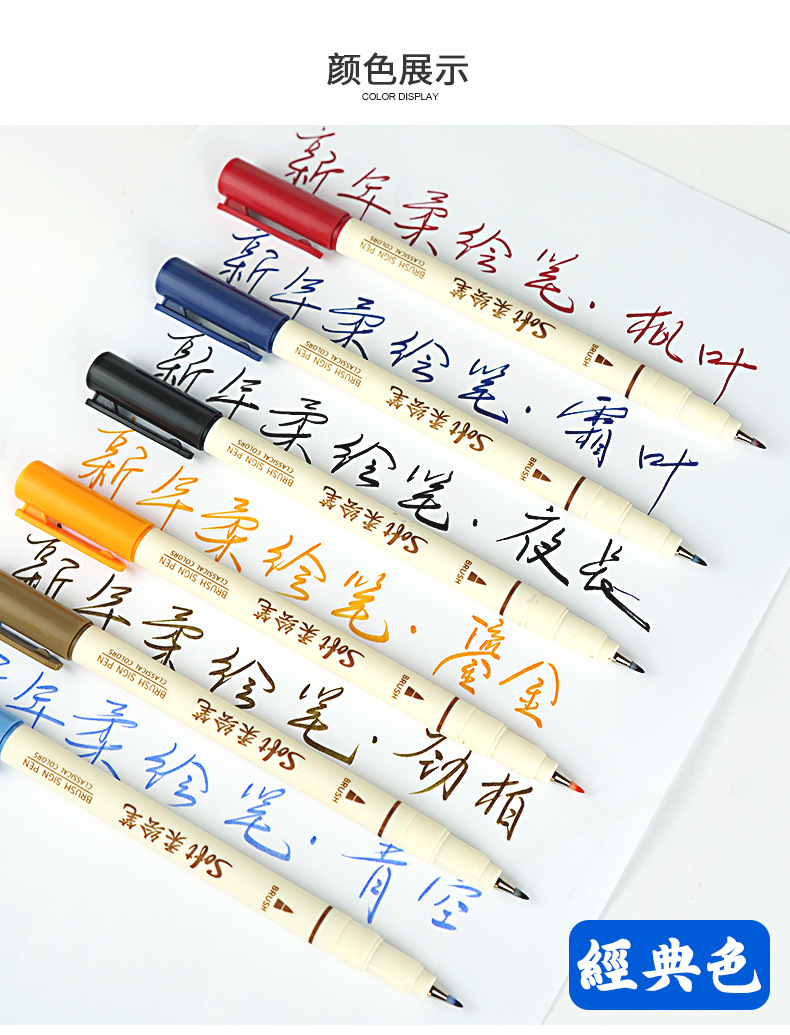 颜色展示
COLOR DISPLAY
新年柔绘笔·枫叶
BRUSH SIGN PEN
CLASSICAL COLORS
Soft柔绘笔
BRUSH
新年柔绘笔·霜叶
BRUSH SIGN PEN
CLASSICAL COLORS
Soft柔绘笔
BRUSH
新年柔绘笔·夜长
BRUSH SIGN PEN
CLASSICAL COLORS
Soft柔绘笔
BRUSH
新年柔绘笔·鎏金
BRUSH SIGN PEN
CLASSICAL COLORS
Soft柔绘笔
BRUSH
新年柔绘笔·劲柏
BRUSH SIGN PEN
Soft柔绘笔
BRUSH
年柔绘笔·青空
BRUSH SIGN PEN
CLASSICAL COLORS
Soft柔绘笔
BRUSH
經典色